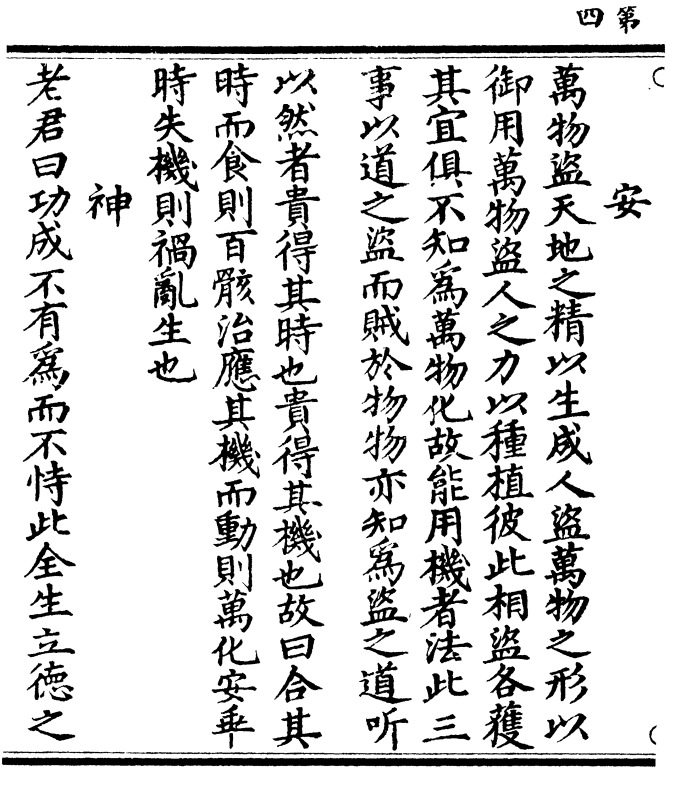 第四
安
萬物盜天地之精以生成人盜萬物之形以
御用萬物盜人之力以種植彼此相盜各蒦
其宜俱不知爲萬物化故能用機者法此三
事以道之盜而賊於物物亦知爲盜之道所
以然者貴得其時也貴得其機也故曰合其
時而食則百骸治應其機而動則萬化安乖
時失機則禍亂生也
神
老君曰功成不有爲而不恃此全生立德之